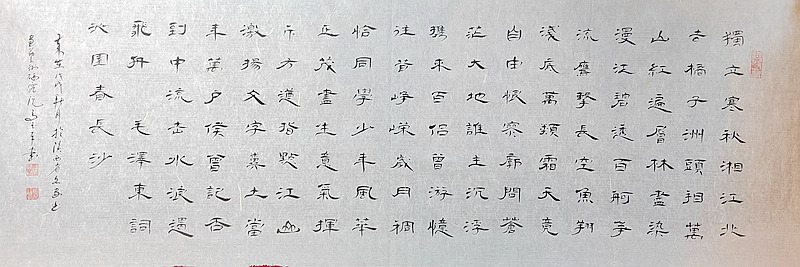 獨立寒秋湘江北
去橘子洲頭看萬
山紅遍層林盡染
漫江碧透百舸爭
流鷹擊長空魚翔
淺底萬類霜天競
自由悵寥廓問蒼
茫大地誰主沉浮
攜來百侶曾游憶
往昔崢嶸歲月稠
恰同學少年風華
正茂書生意氣揮
斥方遒指點江山
激揚文字糞土當
年萬戶侯曾記否
到中流击水浪遏
飛舟 毛澤東詞
沁園春長沙
戊戌秋月於陝西